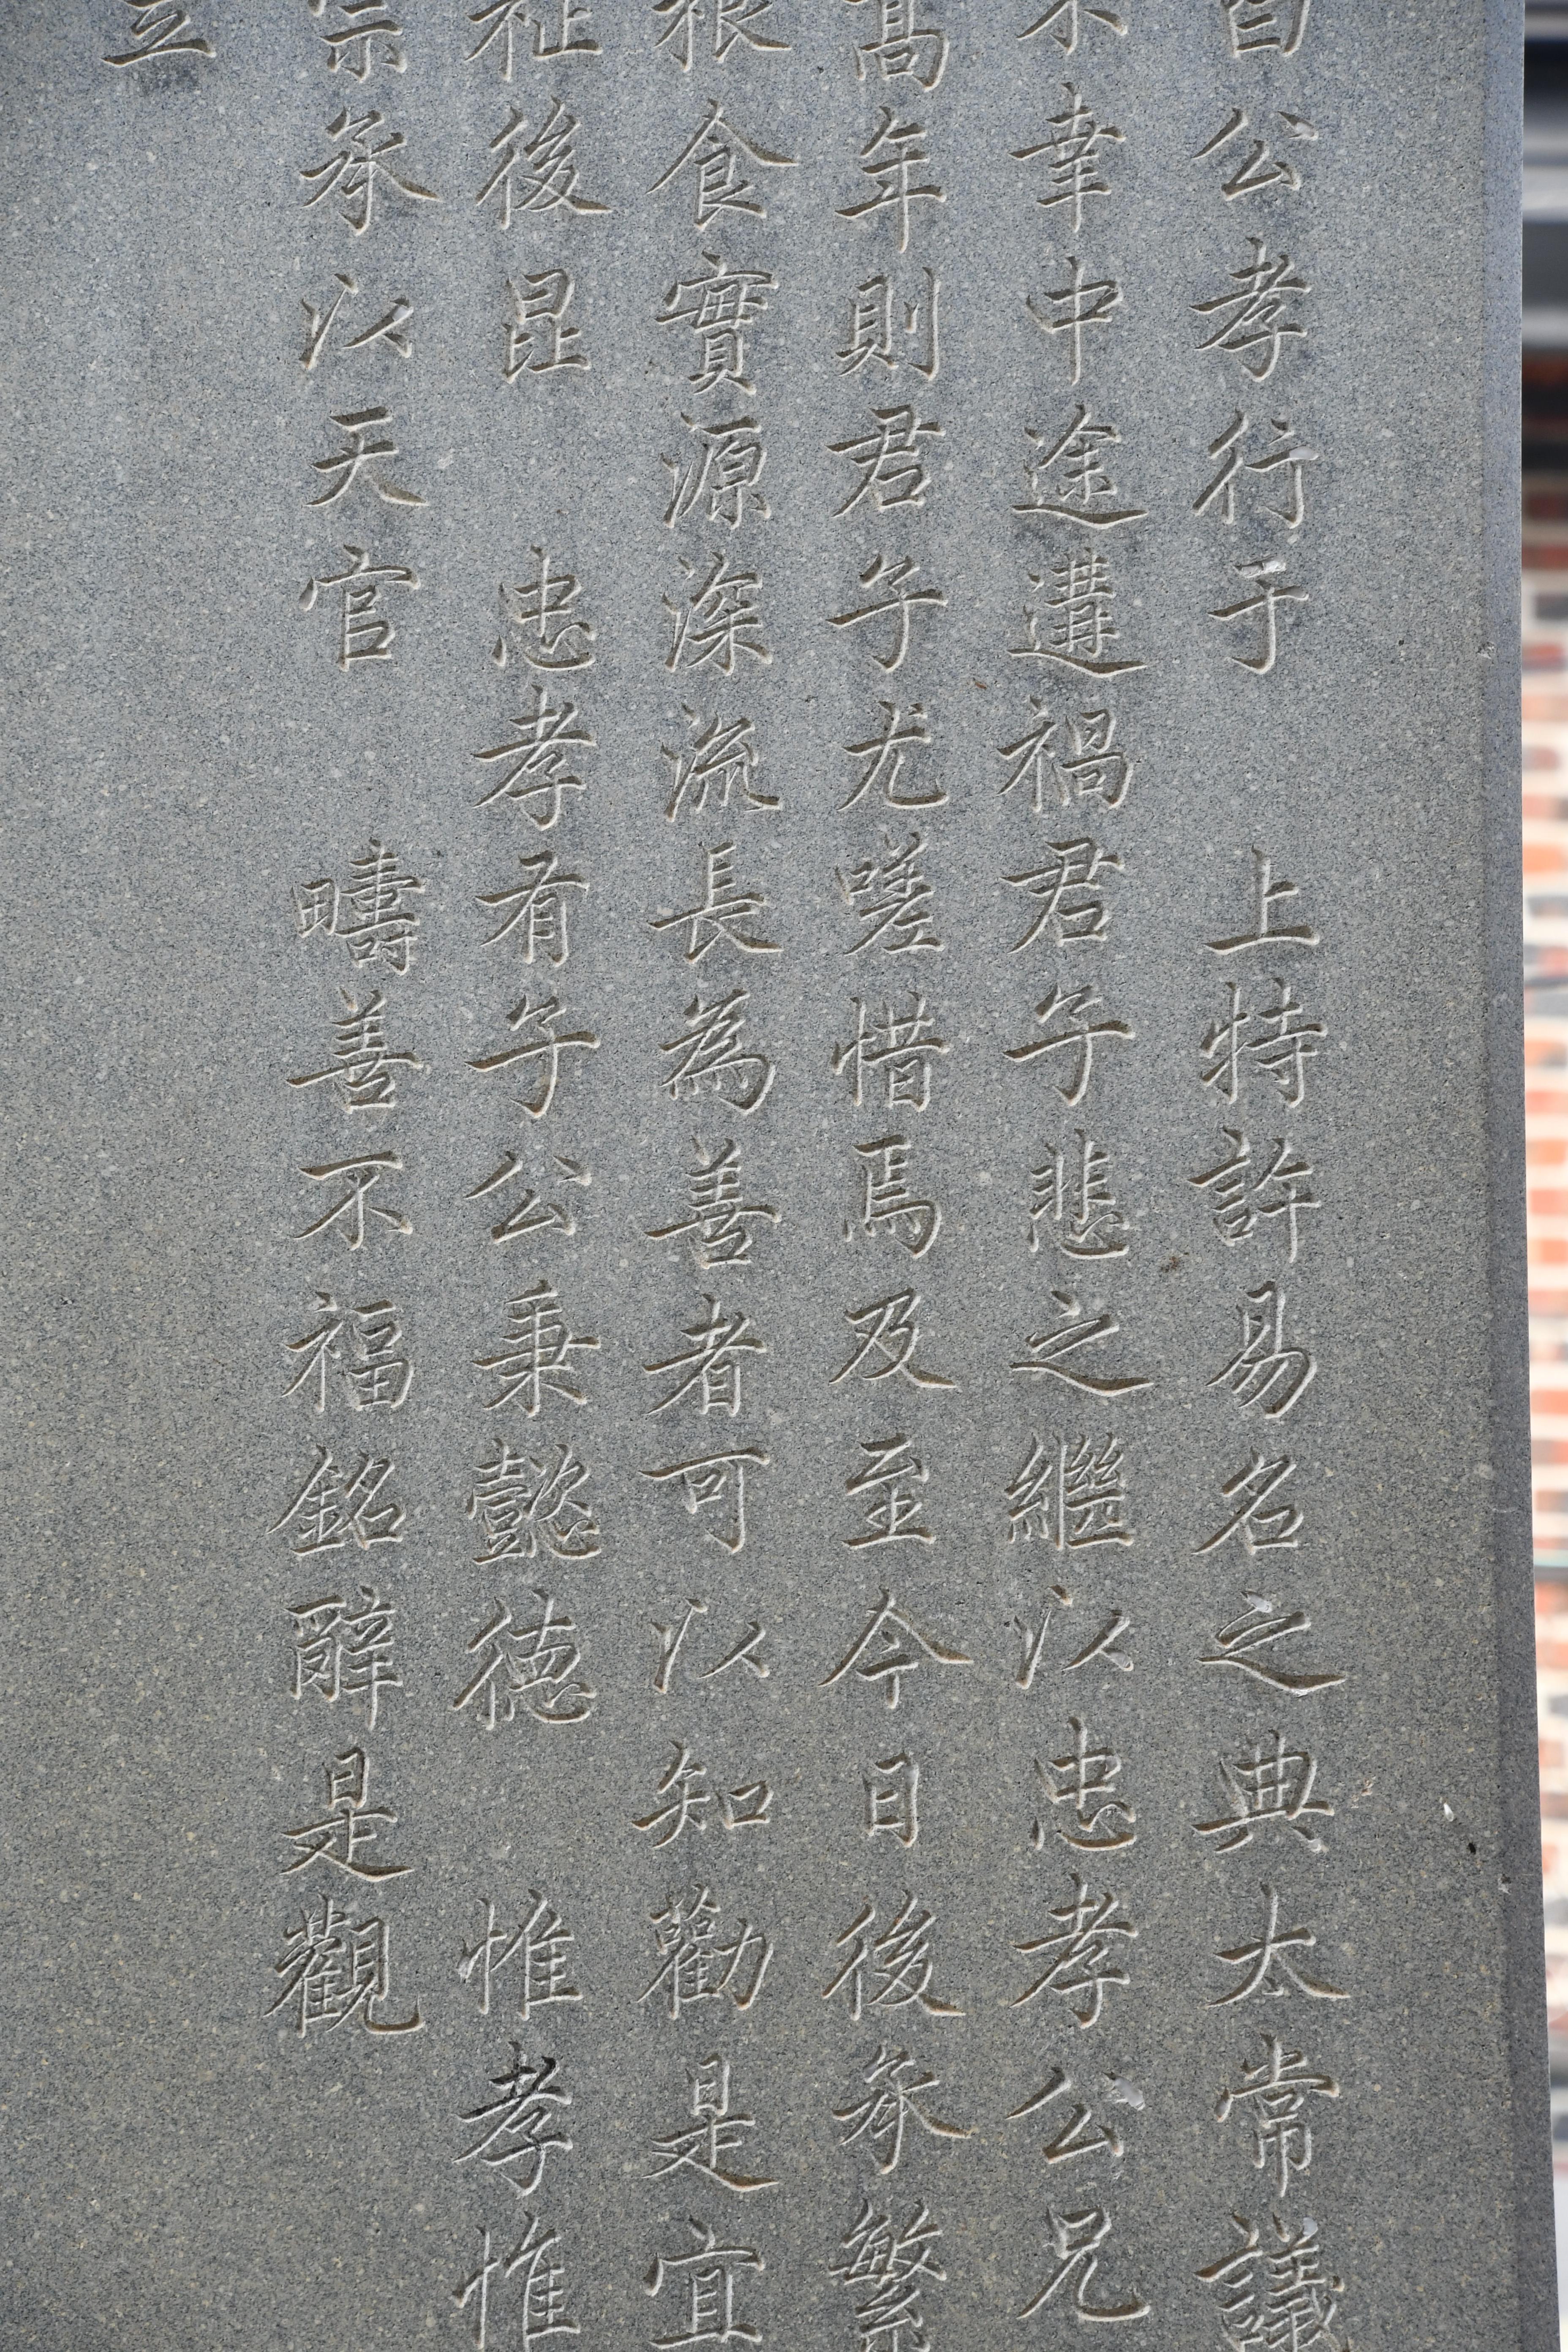 自公孝行于 上特許易名之典太常議
不幸中途遘禍君子悲之繼以忠孝公兄
高年則君子尤嗟惜焉及至今日後承繁
根食實源深流長為善者可以知勸是宜
祉後昆 忠孝有子公秉懿德 惟孝惟
宗承以天官 疇善不福銘辭是觀
立